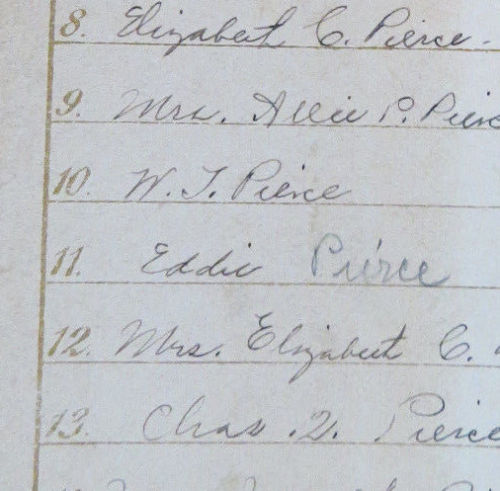 8. Elizabeth C. Pierce.
9. Mrs. Allie P. Pierc
10. W. T. Pierce
11. Eddie Pierce
12. Mrs. Elizabeth C.
13. Chas. Q. Pierce